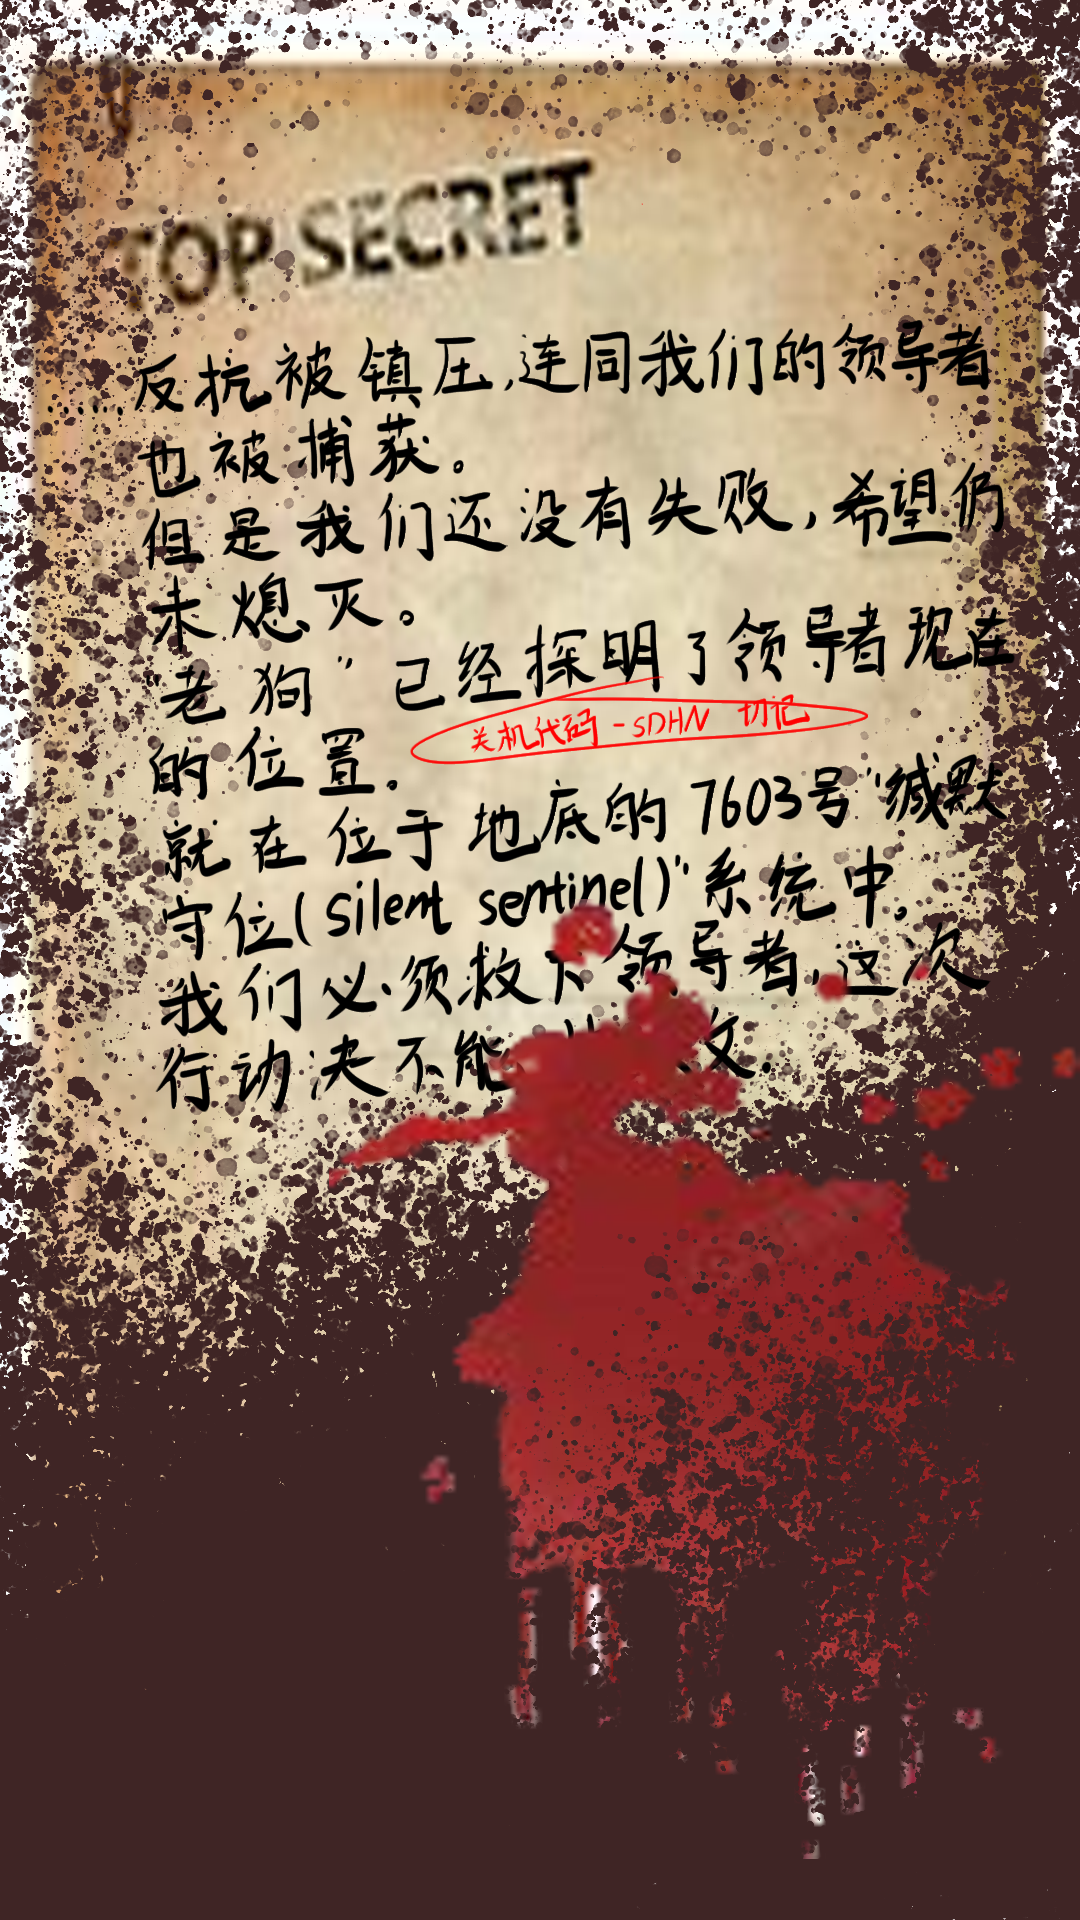 TOP SECRET
……反抗被镇压,连同我们的领导者
也被捕获。
但是我们还没有失败,希望仍
未熄灭。
"老狗"已经探明了领导者现在
的位置.
关机代码-SDHN 切记
就在位于地底的7603号"缄默
守位(Silent sentinel)"系统中,
我们必须救下领导者,这次
行动决不能